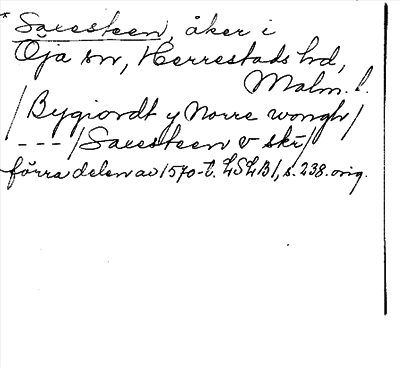 * Saxesteen, åker i
Öja sn, Herrestads hd,
Malm. l.
/Bygiordt y Norre wongh/
--- /Saxesteen v skr/
förra delen av 1570-t. LSLB1, s. 238. orig.